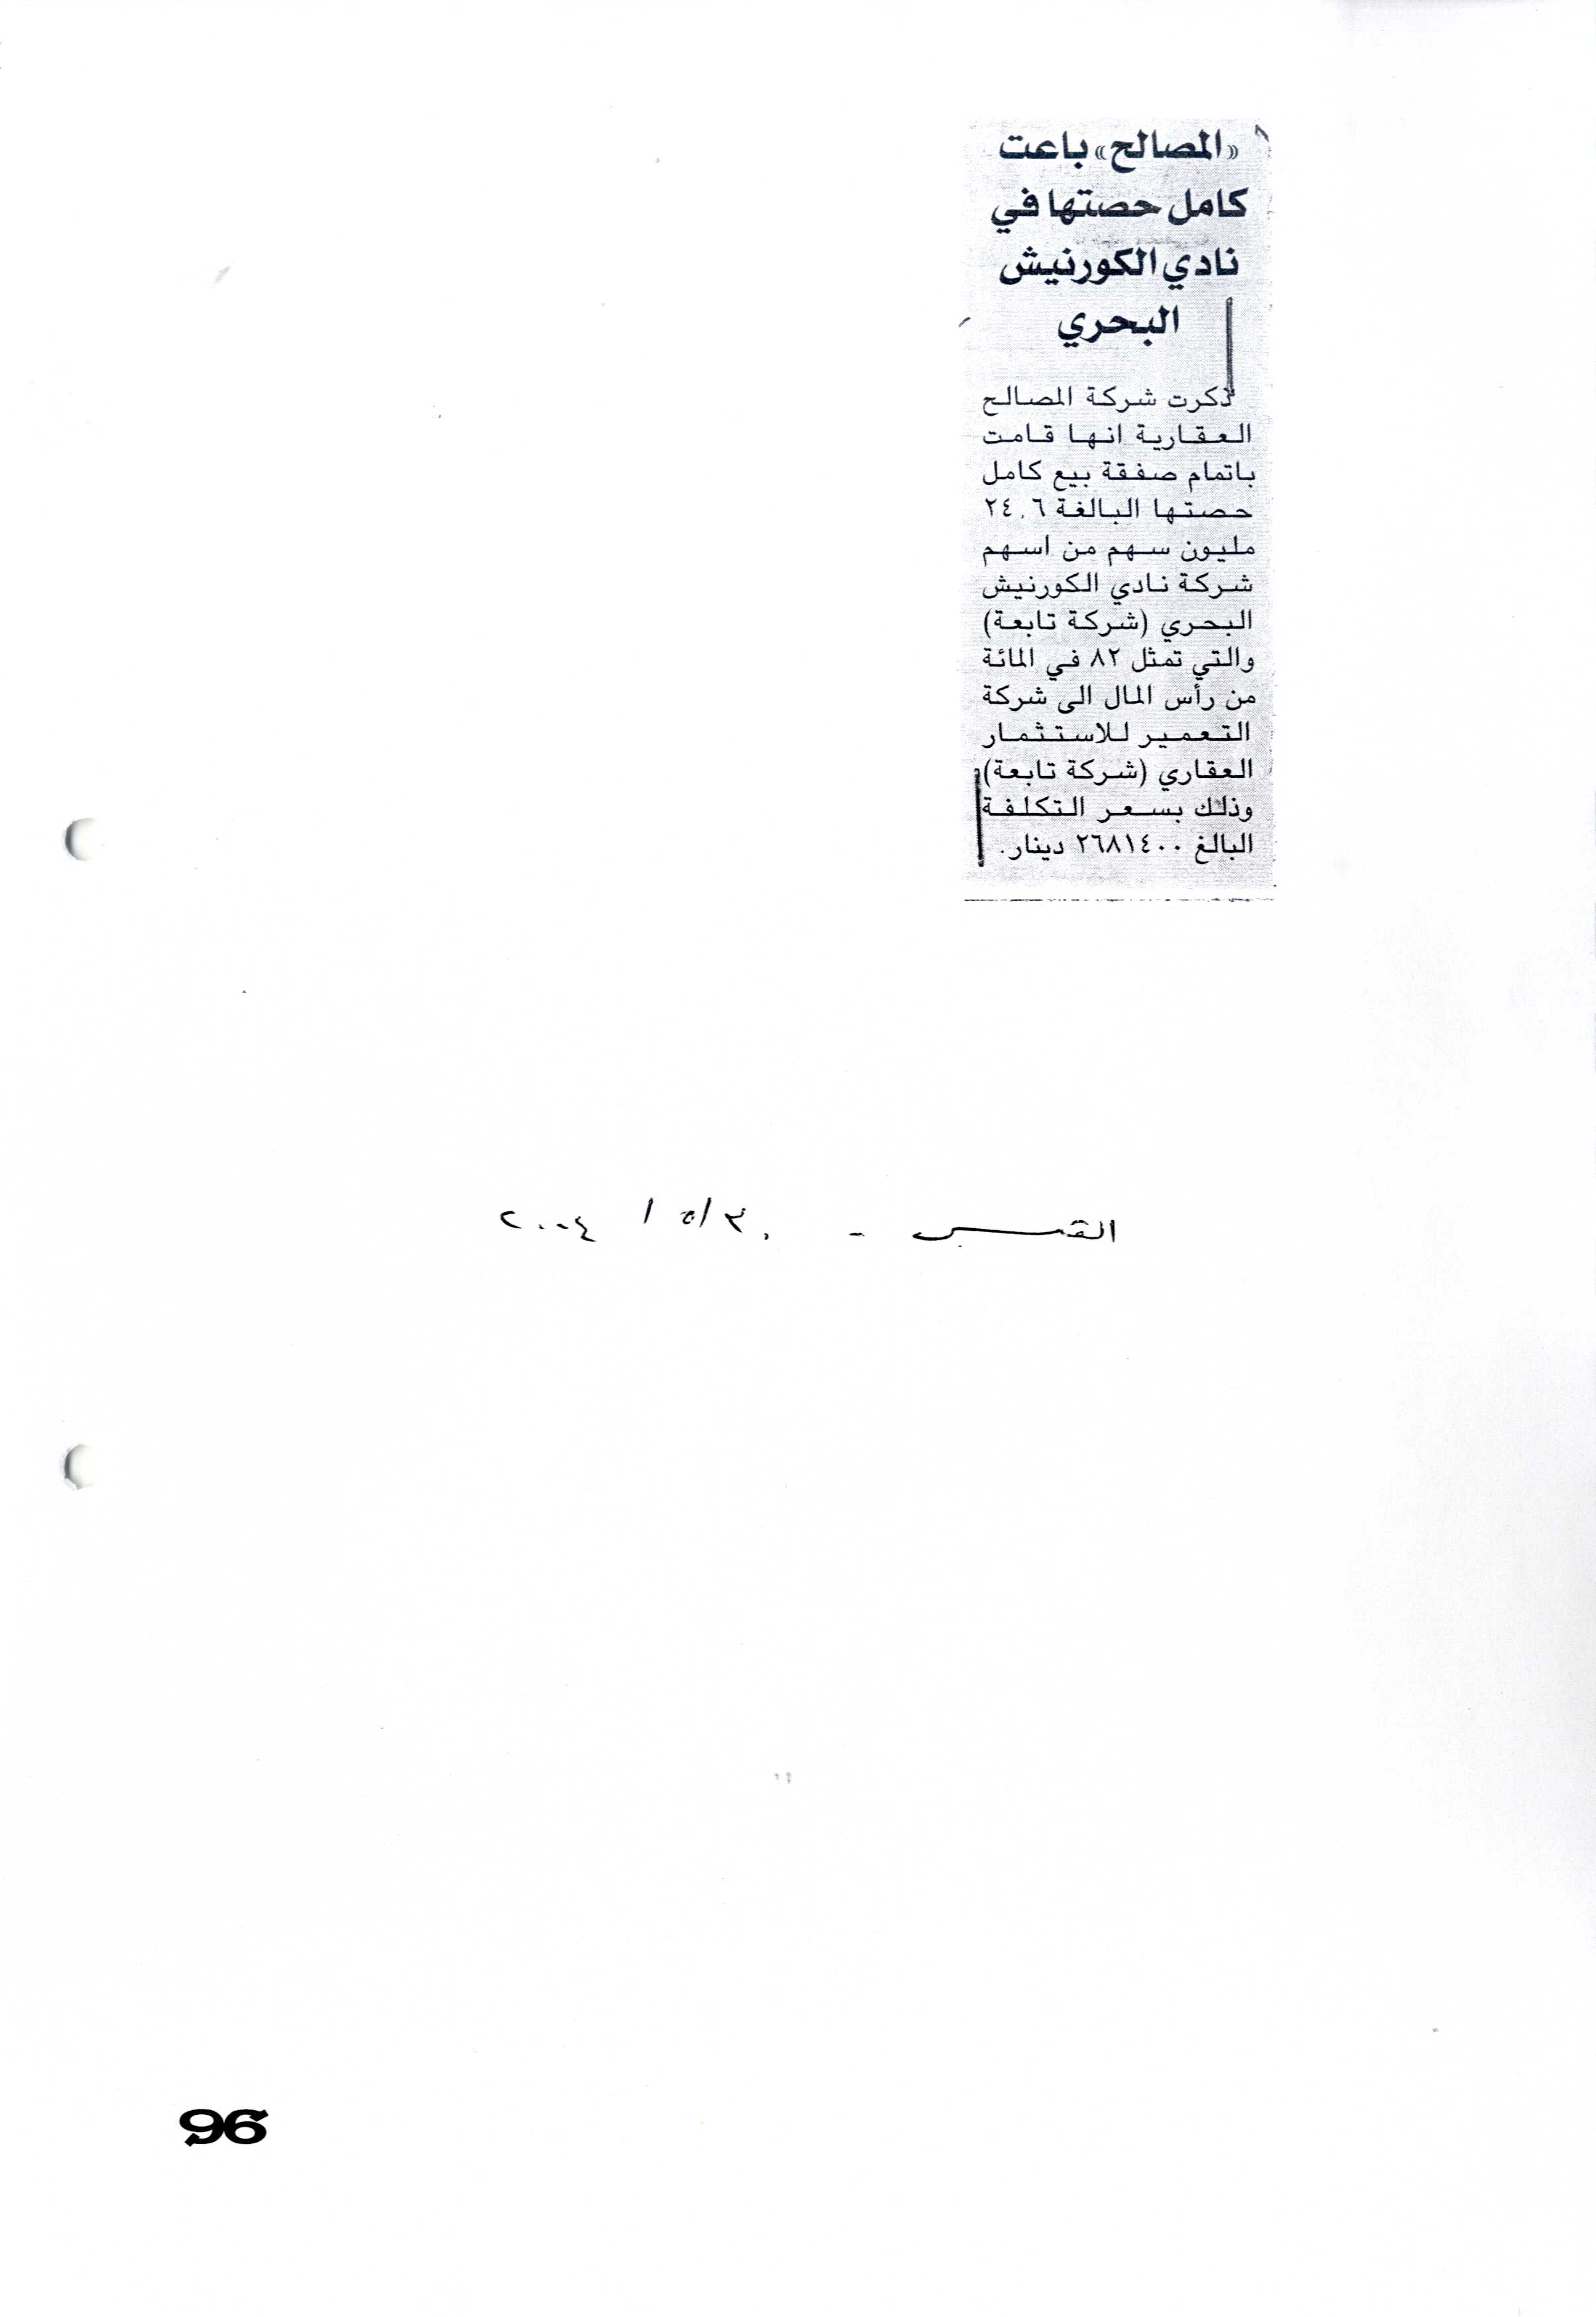 «المصالح» باعت
كامل حصتها في
نادي الكورنيش
البحري
ذكرت شركة المصالح
العقارية انها قامت
باتمام صفقة بيع كامل
حصتها البالغة ٢٤,٦
مليون سهم من اسهم
شركة نادي الكورنيش
البحري (شركة تابعة)
والتي تمثل ٨٢ في المائة
من رأس المال الى شركة
التعمير للاستثمار
العقاري (شركة تابعة)
وذلك بسعر التكلفة
البالغ ٢٦٨١٤٠٠ دينار.
القبس - ٣٠/٥/٢٠٠٤
96